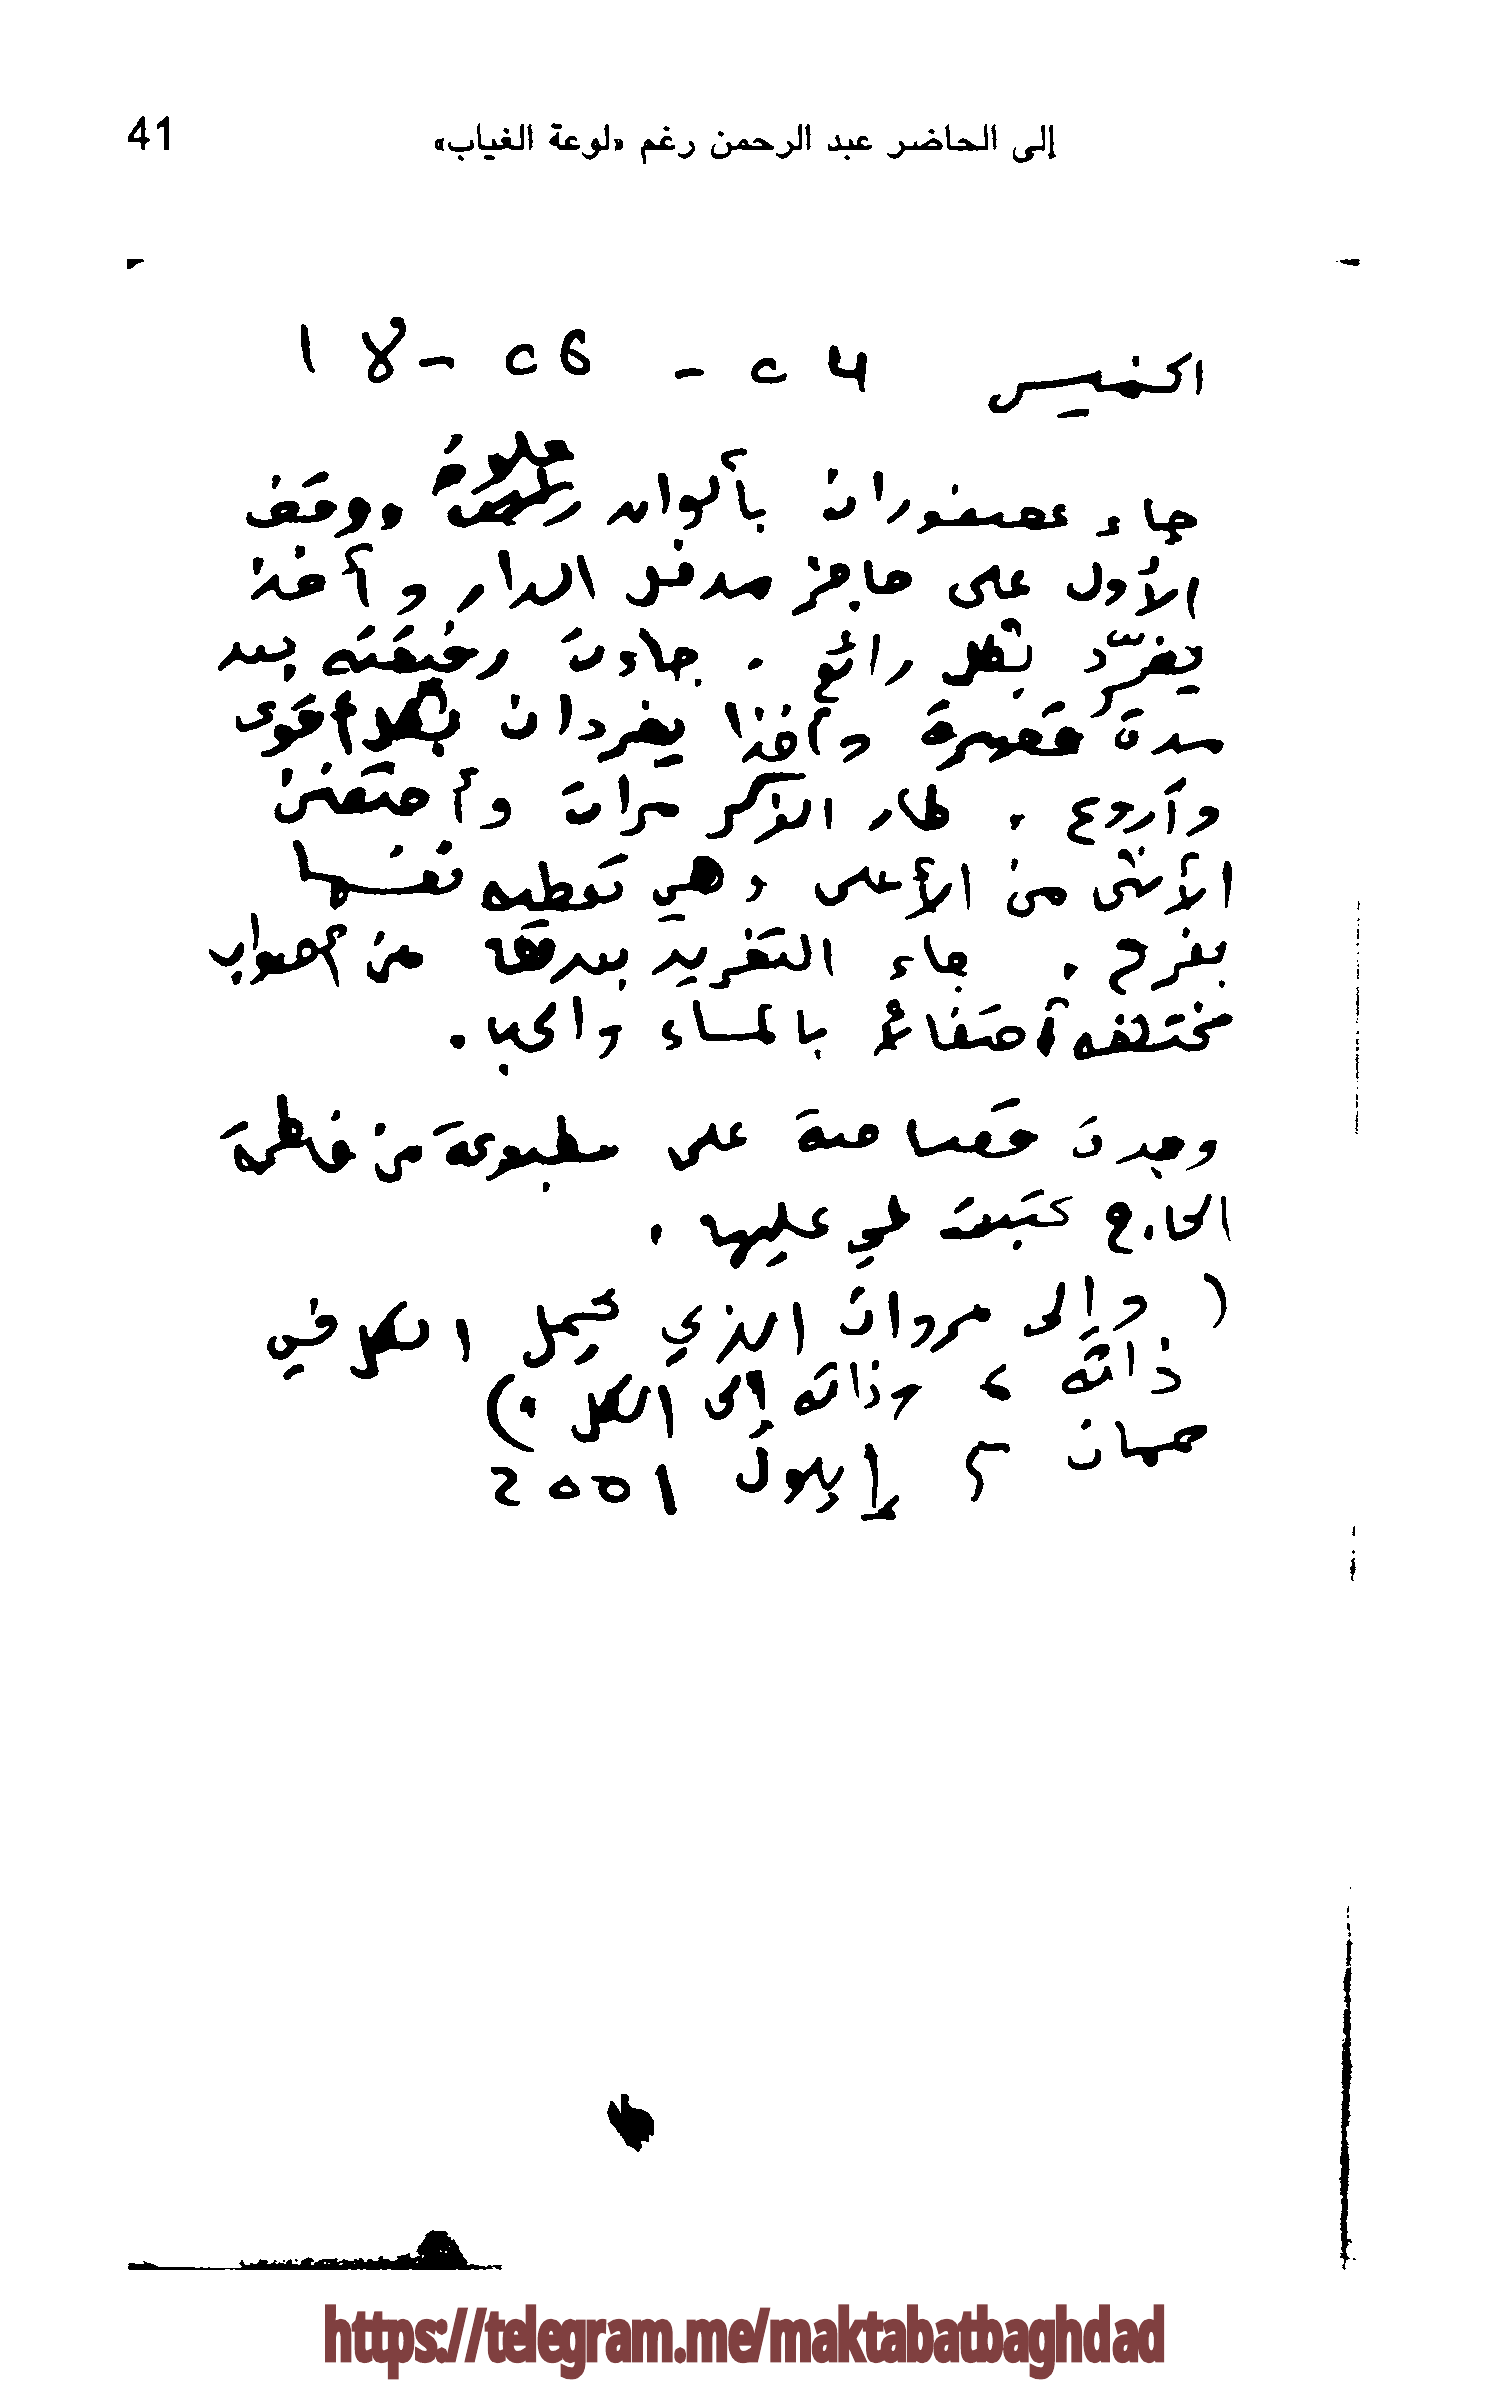 إلى الحاضر عبد الرحمن رغم «لوعة الغياب» 41
الخميس
جاء عصفوران بألوان ملونة ووقف
الأول على حاجز مدخل الدار وأخذ
يغرّد بشكل رائع . جاءت رفيقته بعد
مدة قصيرة وأخذا يغردان بشكل أقوى
وأروع . طار الذكر مرات وأحتضن
الأنثى من الأعلى وهي تعطيه نفسها
بفرح . جاء التغريد بعدها من أصواب
مختلفة أحتفالاً بالمساء والحيا .
وجدت على مطبوعة من فاطمة
الحاج كتبت لي عليها .
( وإلى مروان الذي يحمل الكل في
ذاته ، وذاته إلى الكل . )
عمان ٢ إيلول 2001
https://telegram.me/maktabatbaghdad